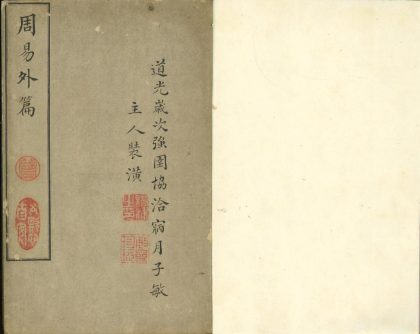 周易外篇
道光歲次強圉協洽寎月子敏
主人裝潢